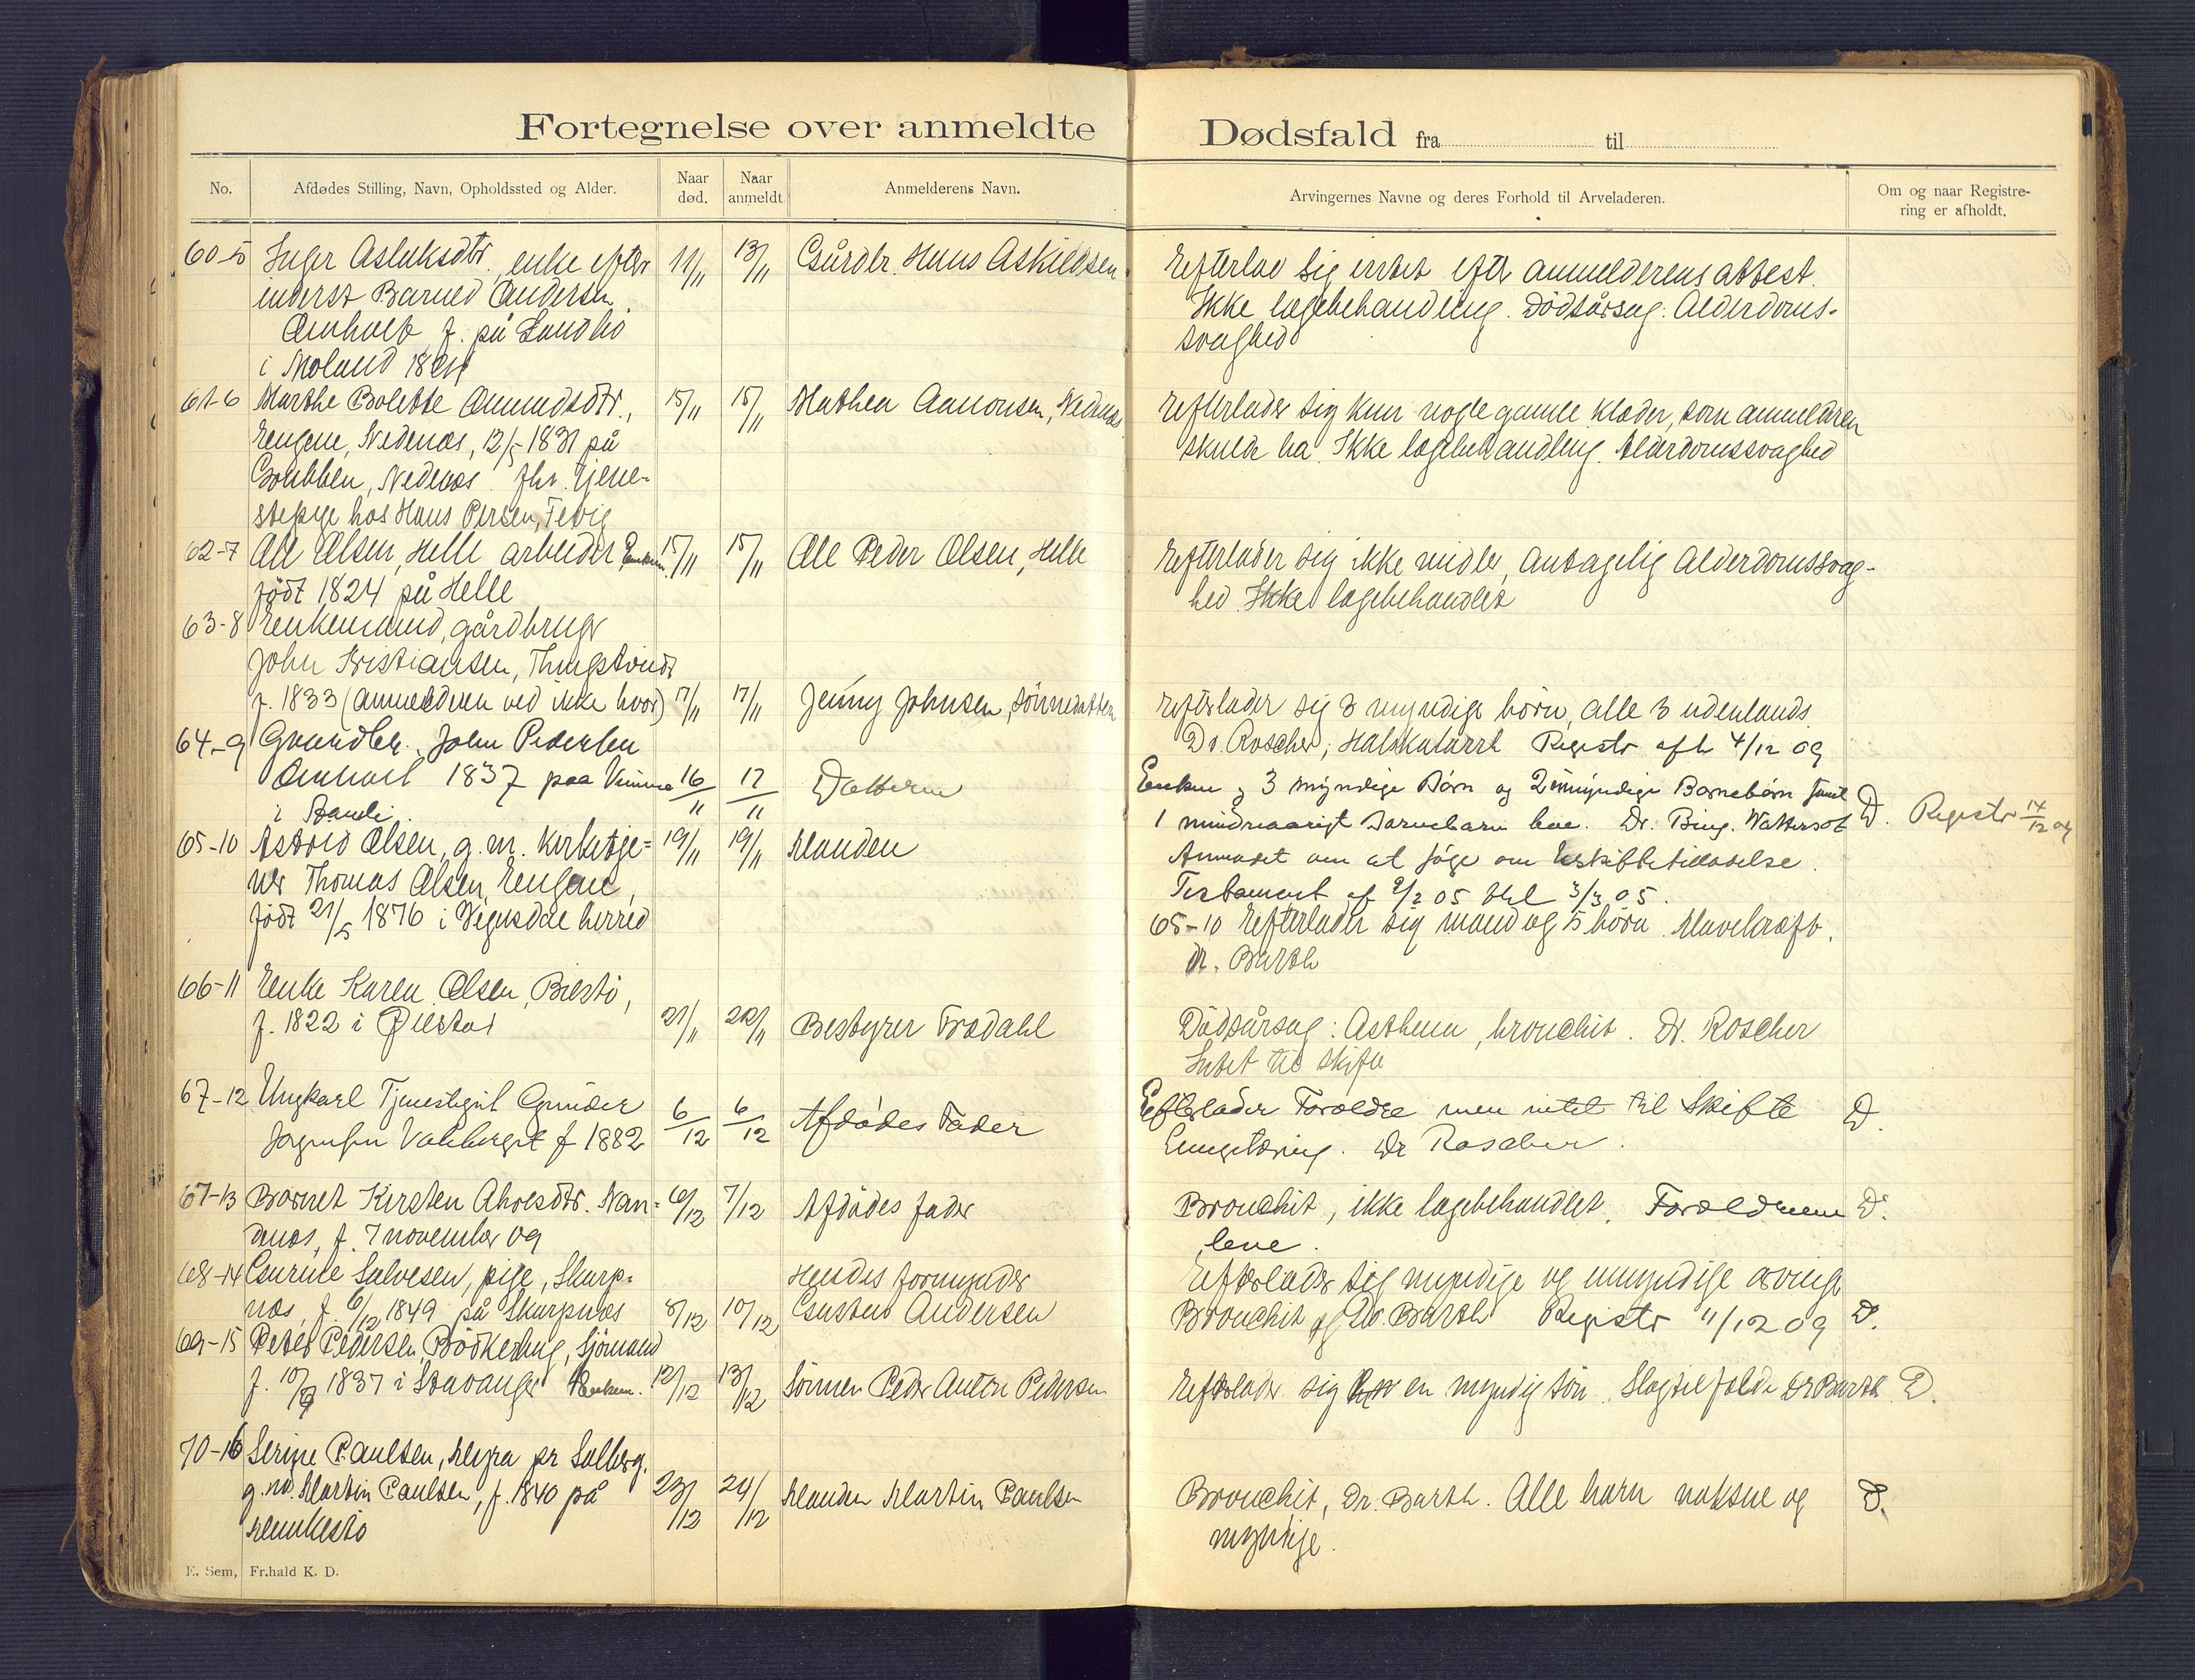 Fortegnelse over anmeldte Dødsfald fra til
No.
Afdødes Stilling, Navn, Opholdssted og Alder.
Naar død.
Naar anmeldt.
Anmelderens Navn.
Arvingernes Navne og deres Forhold til Arveladeren.
Om og naar Registrering er afholdt.
60-5 Inger Aslaksdtr. enke efter 11/11 13/11 Gårdbr. Hans Askildsen
inderst Barned Andersen
Omholt f. på
i Moland
Efterlod sig intet efter anmelderens attest.
Ikke lægebehandling. Dödsårsag: Alderdoms-
svaghed
61-6 Marthe Bolette Amundsdtr., 15/11 15/11 Mathea Aanonsen, Nedenæs
Engene, Nedenæs, 12/5 1831 på
Gubben, Nedenæs. fhv. tjene-
stepige hos Hans Persen, Fevig
Efterlader sig kun nogle gamle klæder, som anmelderen
skulde ha. Ikke lægebehandling. Alderdomssvaghed
62-7 Ole Olsen, Helle arbeider Enkem. 15/11 15/11 Ole Peder Olsen, Helle
født 1824 på Helle
Efterlader sig ikke midler, antagelig Alderdomssvag-
hed. Ikke lægebehandlet
63-8 Enkemand, gårdbruger
John Kristiansen, Thingstveit
f. 1833 (anmelderen ved ikke hvor) 17/11 17/11 Jenny Johnsen, sönnedatter
Efterlader sig 3 myndige börn, alle 3 udenlands
Dr. Roscher, Halskatarrh Registr afh 4/12 09
64-9 Gaardbr. John Pedersen
Omholt 1837 paa 16/11 17/11 Datteren
i
Enken og 3 myndige Børn og 2 umyndige Barnebørn samt
1 mindreaarigt Barnebarn lever. Dr. Bing. Vattersot D. Registr 14/12 09
Anmodet om at søge om Uskiftetilladelse.
Testament af 9/2 05 thl 3/3 05.
65-10 Astrid Olsen, g.m. kirketje- 19/11 19/11 Manden
ner Thomas Olsen, Engene,
født 21/5 1876 i Vegusdal herred
65-10 Efterlader sig mand og 5 börn. Mavekræft.
Dr. Barth
66-11 Enke Karen Olsen, Biestö,
f. 1822 i Øiestad 21/11 22/11 Bestyrer Frodahl
Dödsårsag: Asthma, bronchit. Dr. Roscher
Intet til skifte
67-12 Ungkarl Tjenestegut Gunder 6/12 6/12 Afdødes Fader
Jørgensen Valberget f 1882
Efterlader Forældre men intet til Skifte D.
Lungetæring. Dr Roscher.
67-13 Barnet Kirsten Alvesdtr. Nan- 6/12 7/12 Afdödes fader
næs, f. 7 november 09
Bronchit, ikke lægebehandlet. Forældrene D.
leve.
68-14 Gurine Salvesen, pige, Skarp- Hendes formynder
næs, f. 6/12 1849 på Skarpnæs 8/12 10/12 Gustav Andersen
Efterlader sig myndige og umyndige arvinger
Bronchit Dr. Barth Registr 11/12 09 D.
69-15 Peter Pedersen, Bödkerhug, sjömand
f. 10/9 1837 i Stavanger Enkem. 12/12 13/12 Sönnen Peder Anton Pedersen
Efterlader sig en myndig sön. Slagtilfælde Dr Barth D.
70-16 Serine Paulsen, Myra pr Salberg.
g.m. Martin Paulsen, f. 1840 på 23/12 24/12 Manden Martin Paulsen
Bronchit, Dr. Barth. Alle barn voksne og D.
myndige.
E. Sem, Fr.hald K. D.